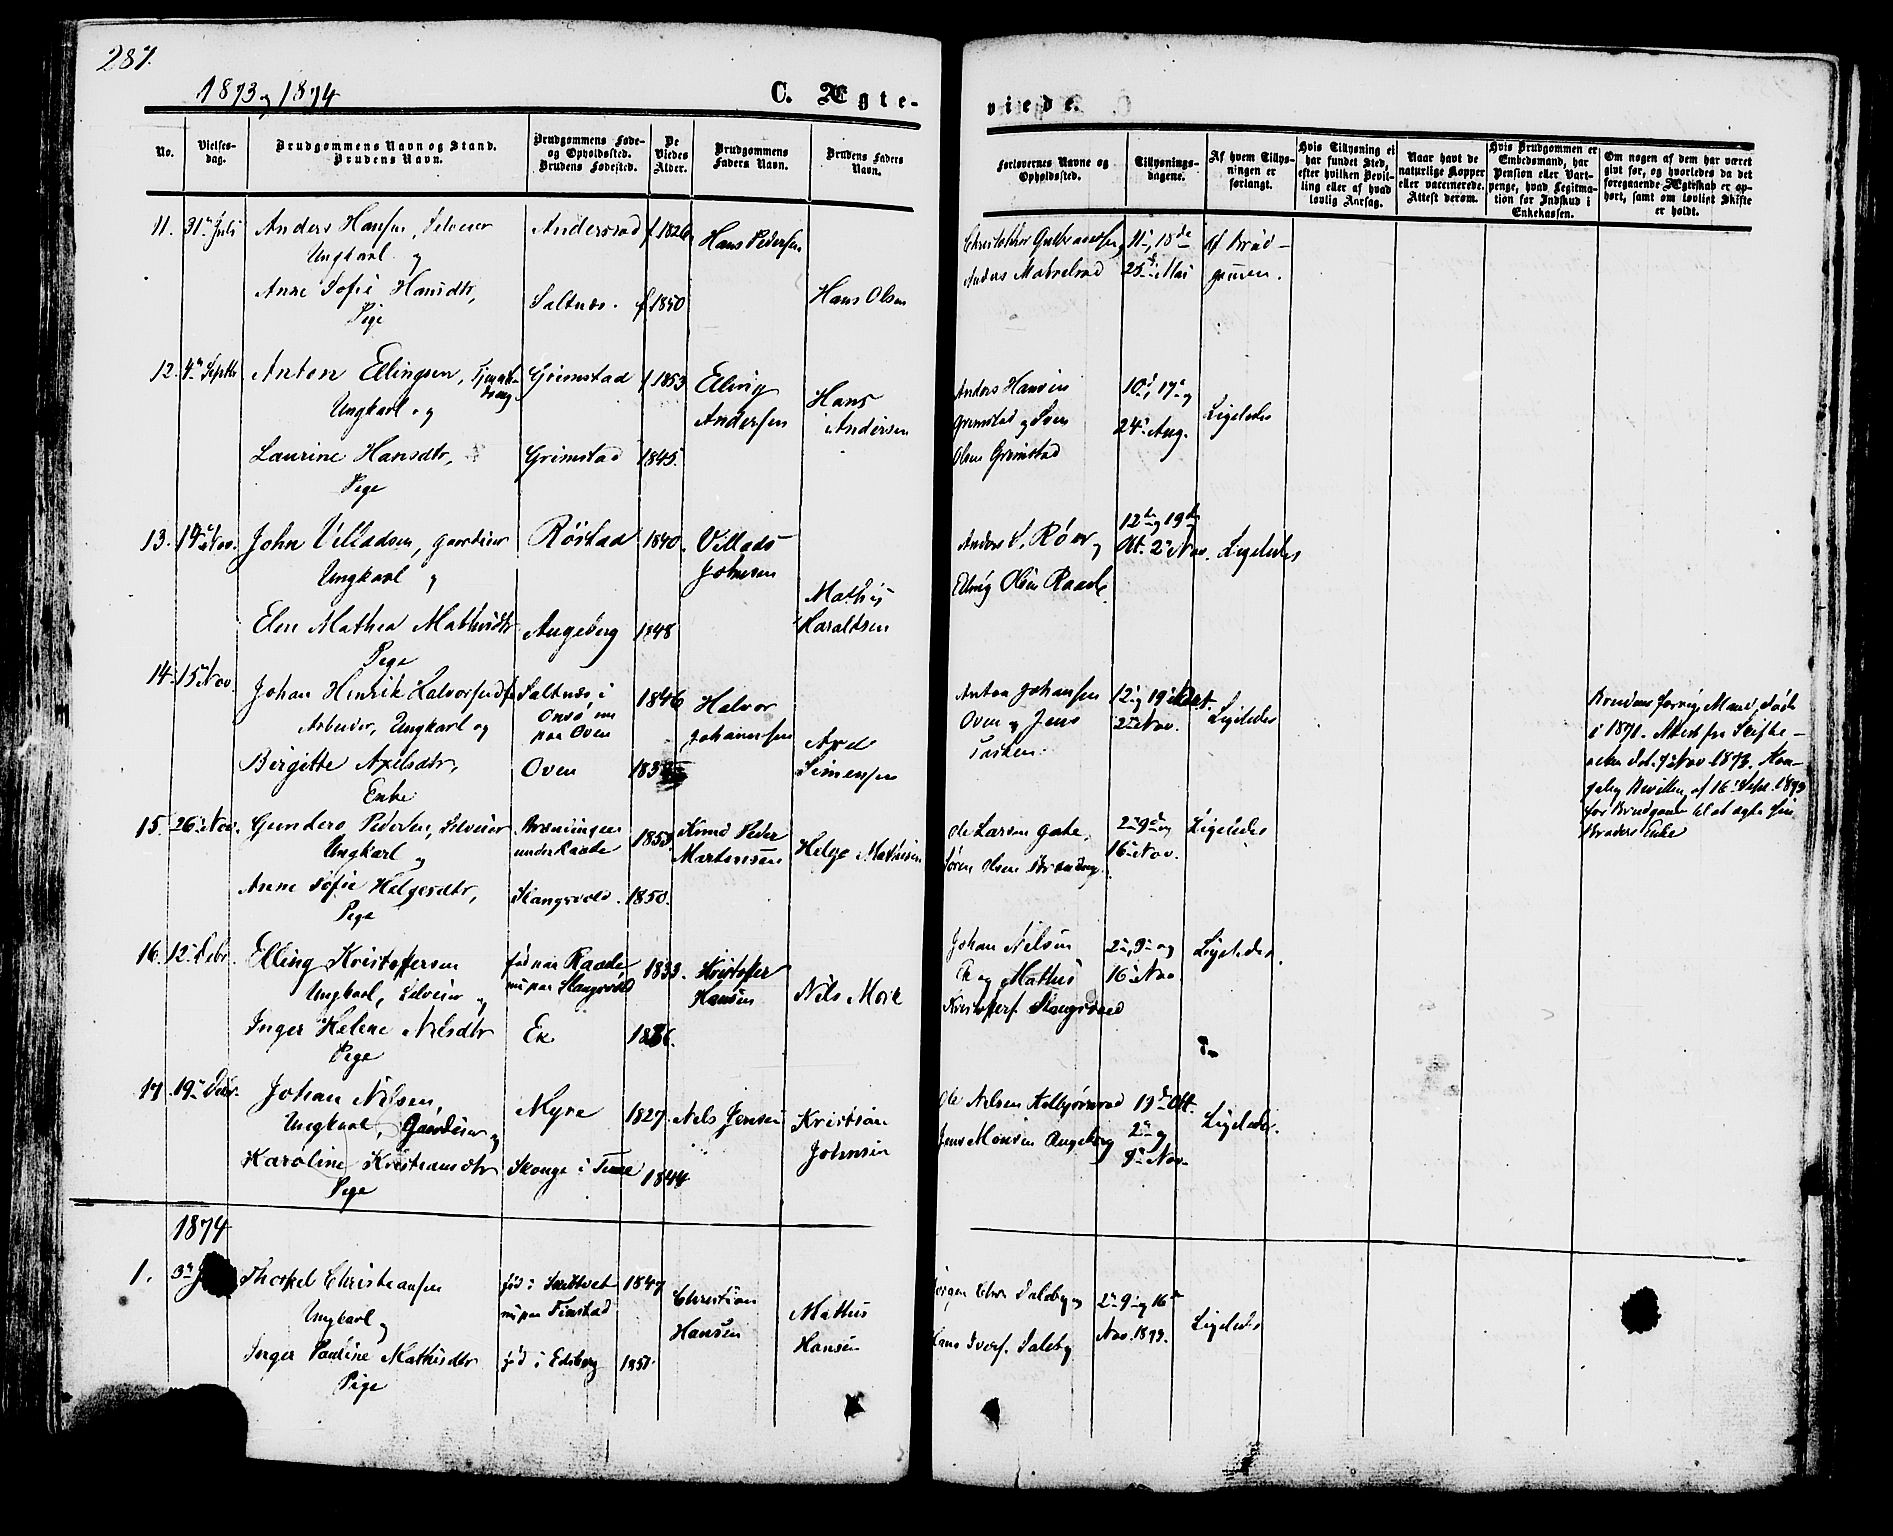 287.
1873 og 1874
C. Ægte-
viede.
No.
Vielses-
dag.
Brudgommens Navn og Stand.
Brudens Navn.
Brudgommens Føde-
og Opholdssted.
Brudens Fødested.
De
Viedes
Alder.
Brudgommens
Faders Navn.
Brudens Faders
Navn.
Forlovernes Navne og
Opholdssted.
Tillysnings-
dagene.
Af hvem Tillys-
ningen er
forlangt.
Hvis Tillysning ei
har fundet Sted,
efter hvilken Bevil-
ling eller af hvad
lovlig Aarsag.
Naar havt de
naturlige Kopper
eller vaccinerede.
Attest derom.
Hvis Brudgommen er
Embedsmand, har
Pension eller Vart-
penge, hvad Legitima-
tion for Indskud i
Enkekassen.
Om nogen af dem har været
givt før, og hvorledes da det
foregaaende Ægteskab er op-
hørt, samt om lovligt Skifte
er holdt.
11. 31 Juli
Anders Hansen, Selveier
Ungkarl og
Anne Sofie Hansdtr,
Pige
Andersrød f 1826
Saltnes. f 1850
Hans Pedersen
Hans Olsen
Christopher Gulbrandsen
Anders
11, 18de
25 Mai
af Brud-
gommen.
12. 4 Septbr
Anton Ellingsen,
Ungkarl og
Laurine Hansdtr,
Pige
Grimstad f 1853
Grimstad 1845
Elling
Andersen
Hans
Andersen
Anders Hansen
Grimstad og Sven
Olsen Grimstad
10, 17 og
24 Aug.
Ligeledes
13. Nov.
John Villadsen, Gaardeier
Ungkarl og
Elen Mathea Mathisdtr
Pige
Rørstad 1840.
Augeberg 1848
Villads
Johnsen
Mathis
Haraldsen
Anders S. Røer og
Elling Olsen Raade.
12te og 19de
Okt. 2 Nov.
Ligeledes
14. 15 Nov.
Johan Henrik Halvorsen
Arbeider, Ungkarl og
Birgitte Axelsdtr,
Enke
Saltnes i
Onsø, nu
paa Oven
Oven
1846
Halvor
Johannesen
Axel
Simensen
Anton Johansen
Oven og Jens
12 og 19 Okt.
2 Nov.
Ligeledes
Brudens forrige Mand døde
i 1871. Attest fra Skifte-
retten dat. 7 Nov 1873. Kon-
gelig Bevilling af 16 Sept. 1873
for Brudgom til at ægte sin
Broders Enke
15. 26 Nov.
Gunders Pedersen, Selveier
Ungkarl og
Anne Sofie Helgesdtr,
Pige
under Raade
Slangsvold.
1853
1850.
Knud Peder
Martensen
Helge Mathisen
Ole Larsen
Søren Olsen
2 9de og
16 Nov.
Ligeledes
16. 12 Debr.
Elling Kristoffersen
Ungkarl, Selveier og
Inger Helene Nilsdtr
Pige
fød paa Raade
nu paa Slangsvold
Ek
1833.
Kristoffer
Hansen
Nils Mork
Johan Nilsen
Ek og Mathis
Kristoffers. Slangsvold
2, 9 og
16 Nov
Ligeledes.
17. 19 Debr.
Johan Nilsen,
Ungkarl, Gaardeier og
Karoline Kristiansdtr
Pige
Myre
Skonge i Tune
1827.
1844
Nils Jensen
Kristian
Johnsen
Ole Nilsen
Jens Monsen Augeberg
19de Okt.
2 og
9 Nov.
Ligeledes.
1874
1. 3
Thorkel Christiansen
Ungkarl og
Inger Pauline Mathisdtr
Pige
fød i Skibtvet
nu paa Finstad
fød i Edsberg
1847
1851.
Christian
Hansen
Mathis
Hansen
Chr Daleby og
Hans Ivers. Daleby
2 9 og 16
Nov. 1873.
Ligeledes